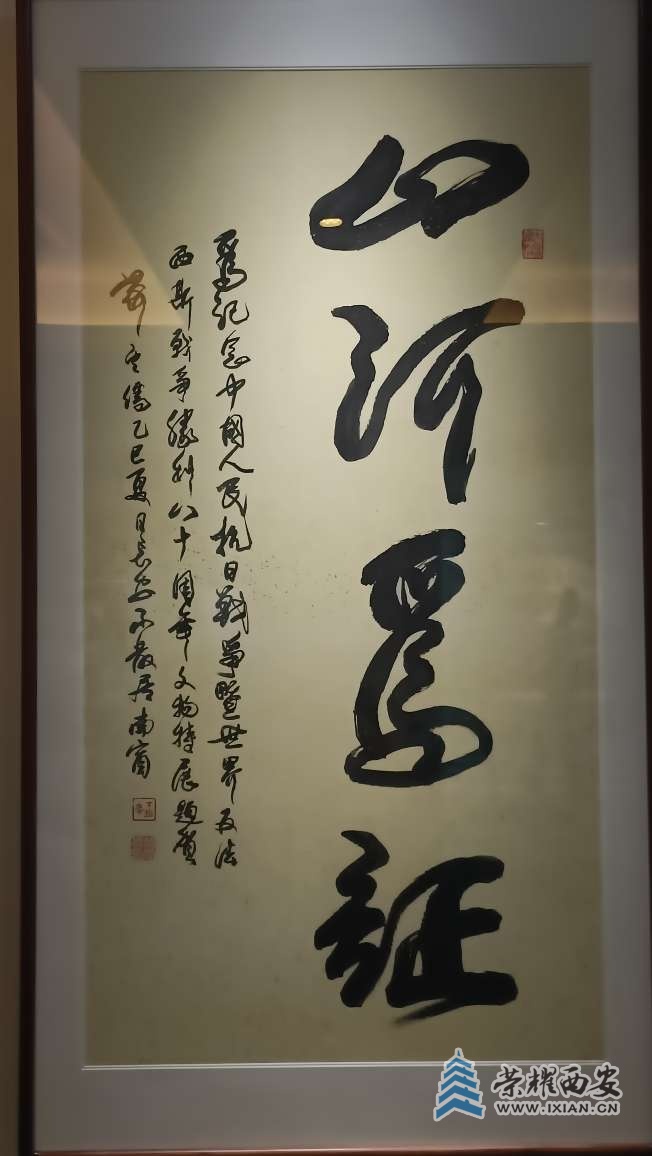 山河為證
為記念中國人民抗日戰爭暨世界反法
西斯戰爭勝利八十周年文物特展題賀
乙巳夏日長安不散居南窗
荣耀西安
WWW.IXIAN.CN